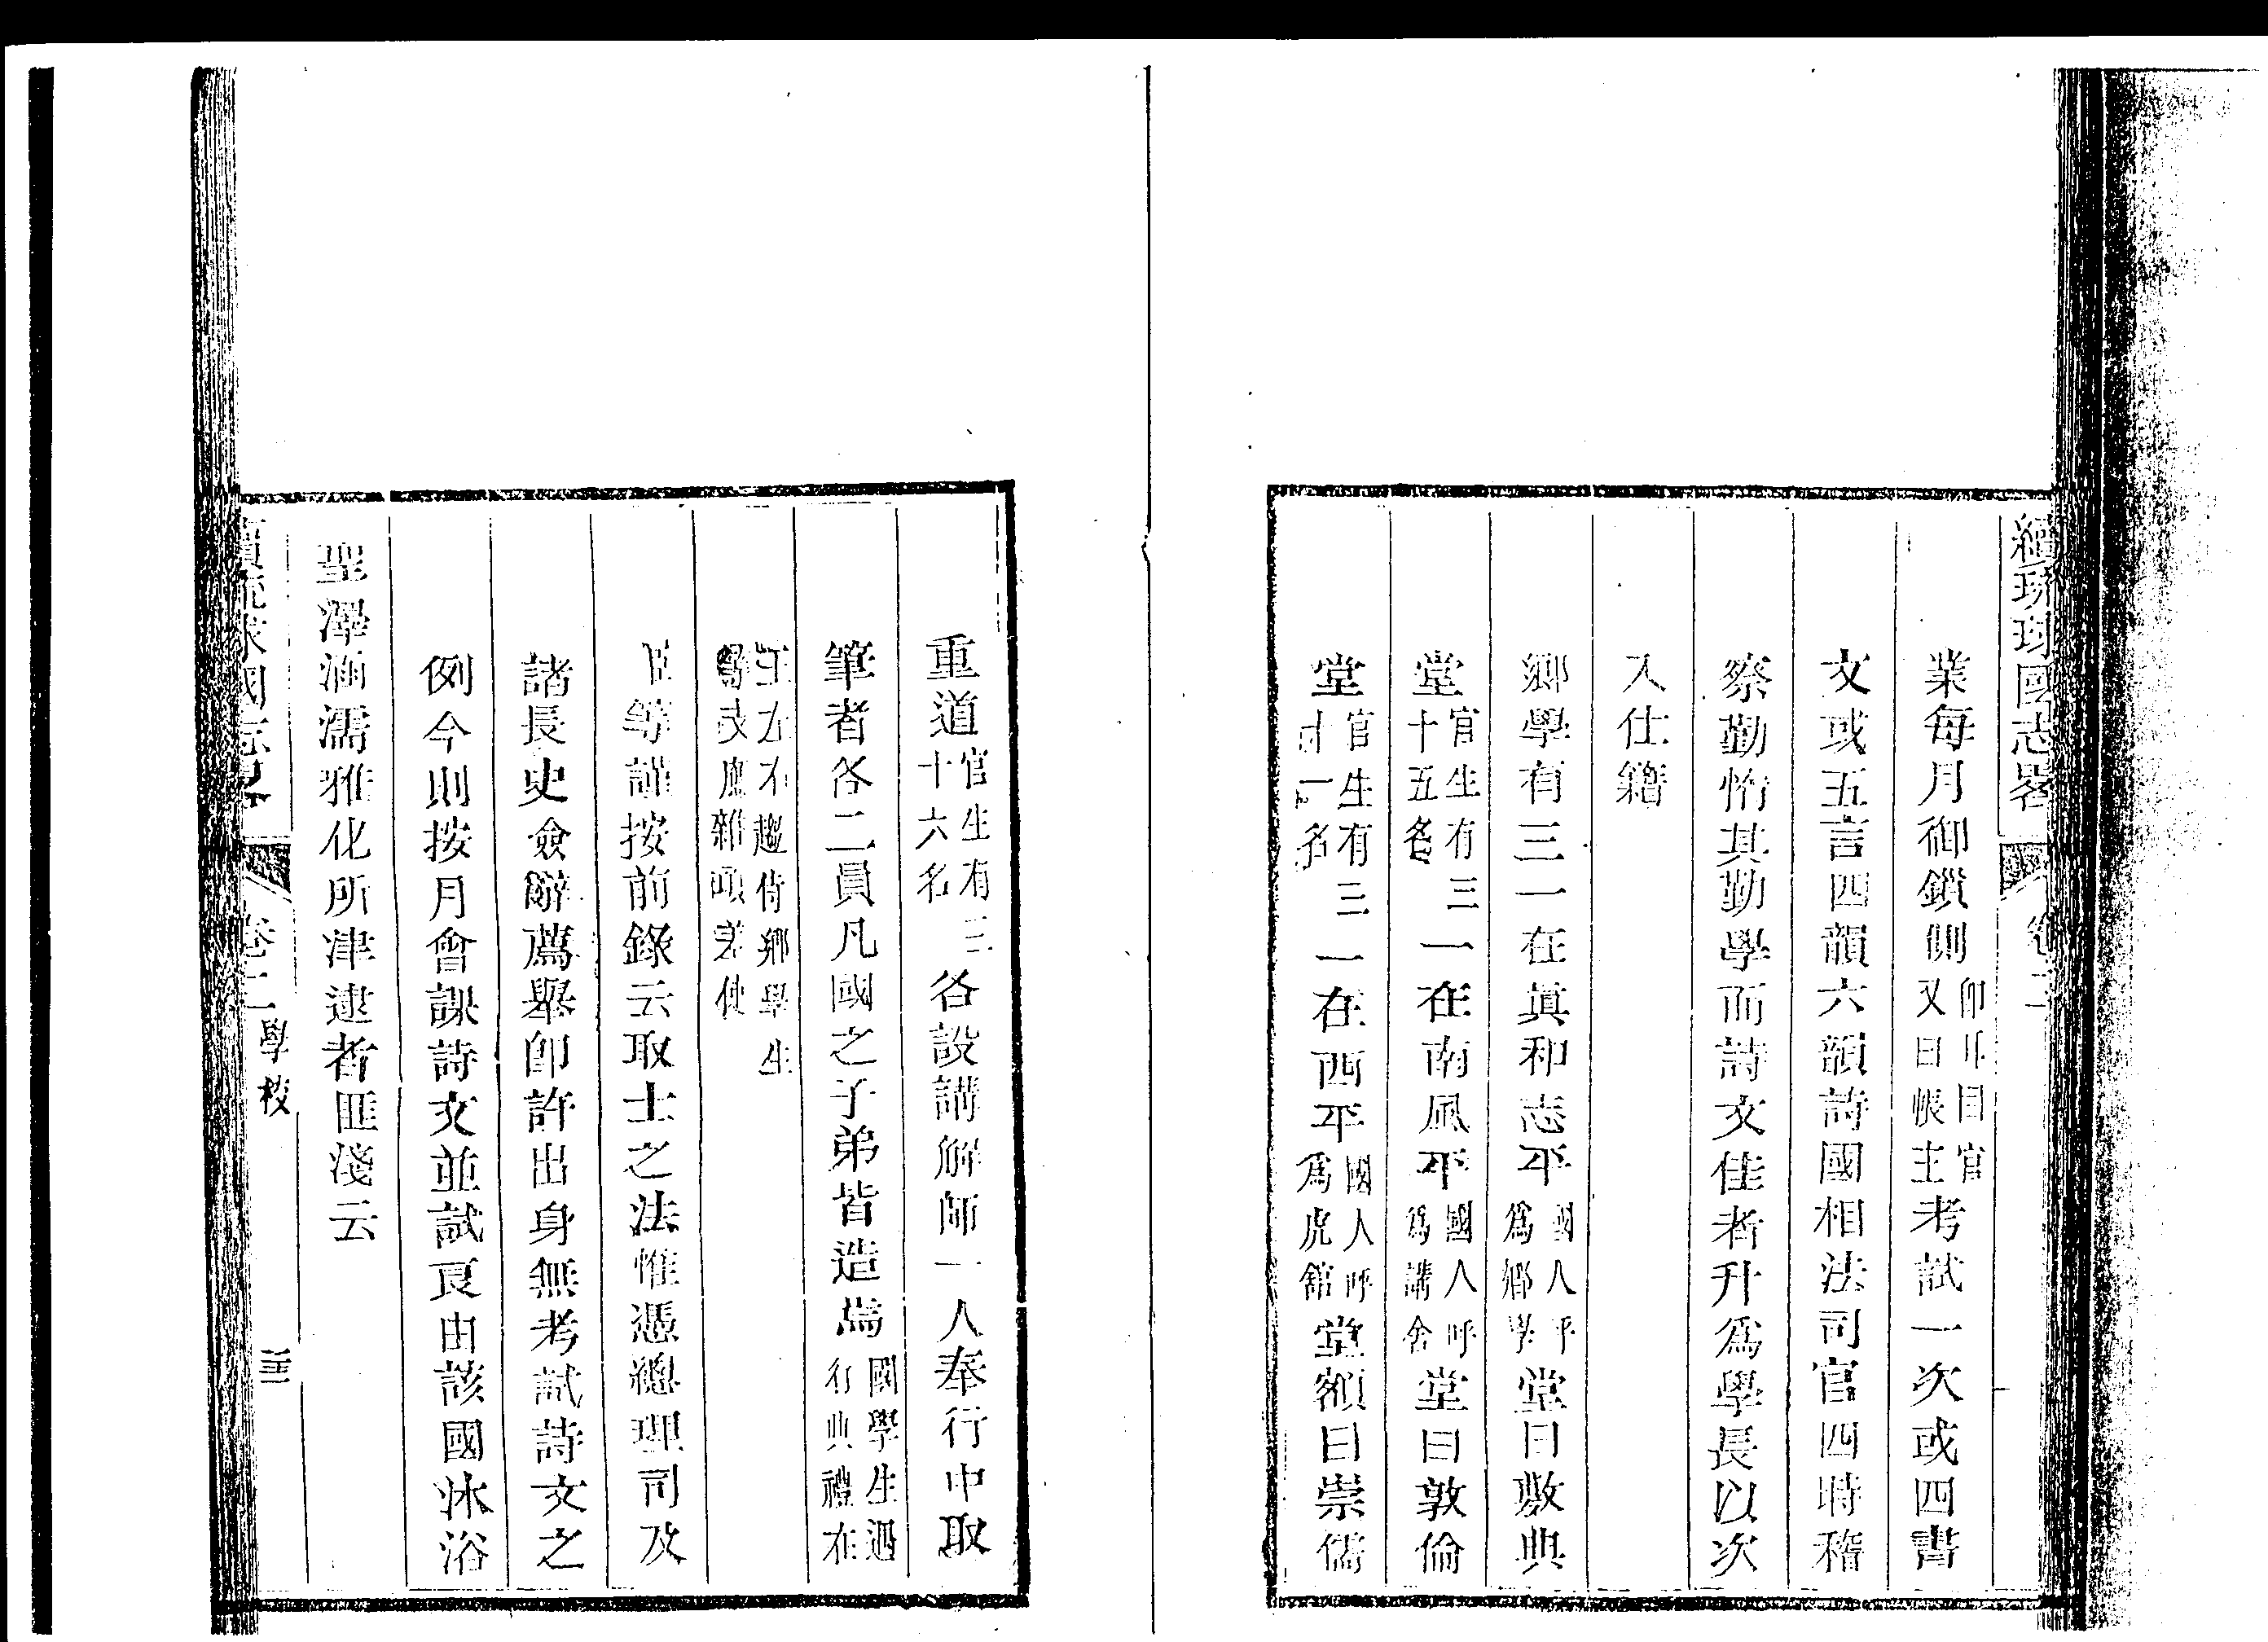 續琉球國志畧 卷二
業每月御鎖側卽耳目官又曰帳主考試一次或四書
文或五言四韻六韻詩國相法司官四時稽
察勤惰其勤學而詩文佳者升爲學長以次
入仕籍
鄉學有三一在眞和志平國人呼爲鄉學堂曰敷典
堂官生有三十五名一在南風平國人呼爲講舍堂曰敦倫
堂官生有三十一名一在西平國人呼爲虎館堂額曰崇儒
重道官生有三十六名各設講解師一人奉行中取
筆者各二員凡國之子弟皆造焉國學生遇行典禮在
王左右趨侍鄉學生爲及應雜項差使
臣等謹按前錄云取士之法惟憑總理司及
諸長史僉辭薦舉卽許出身無考試詩文之
例今則按月會課詩文並試良由該國沐浴
聖澤涵濡雅化所津逮者匪淺云
續琉球國志畧 卷二 學校